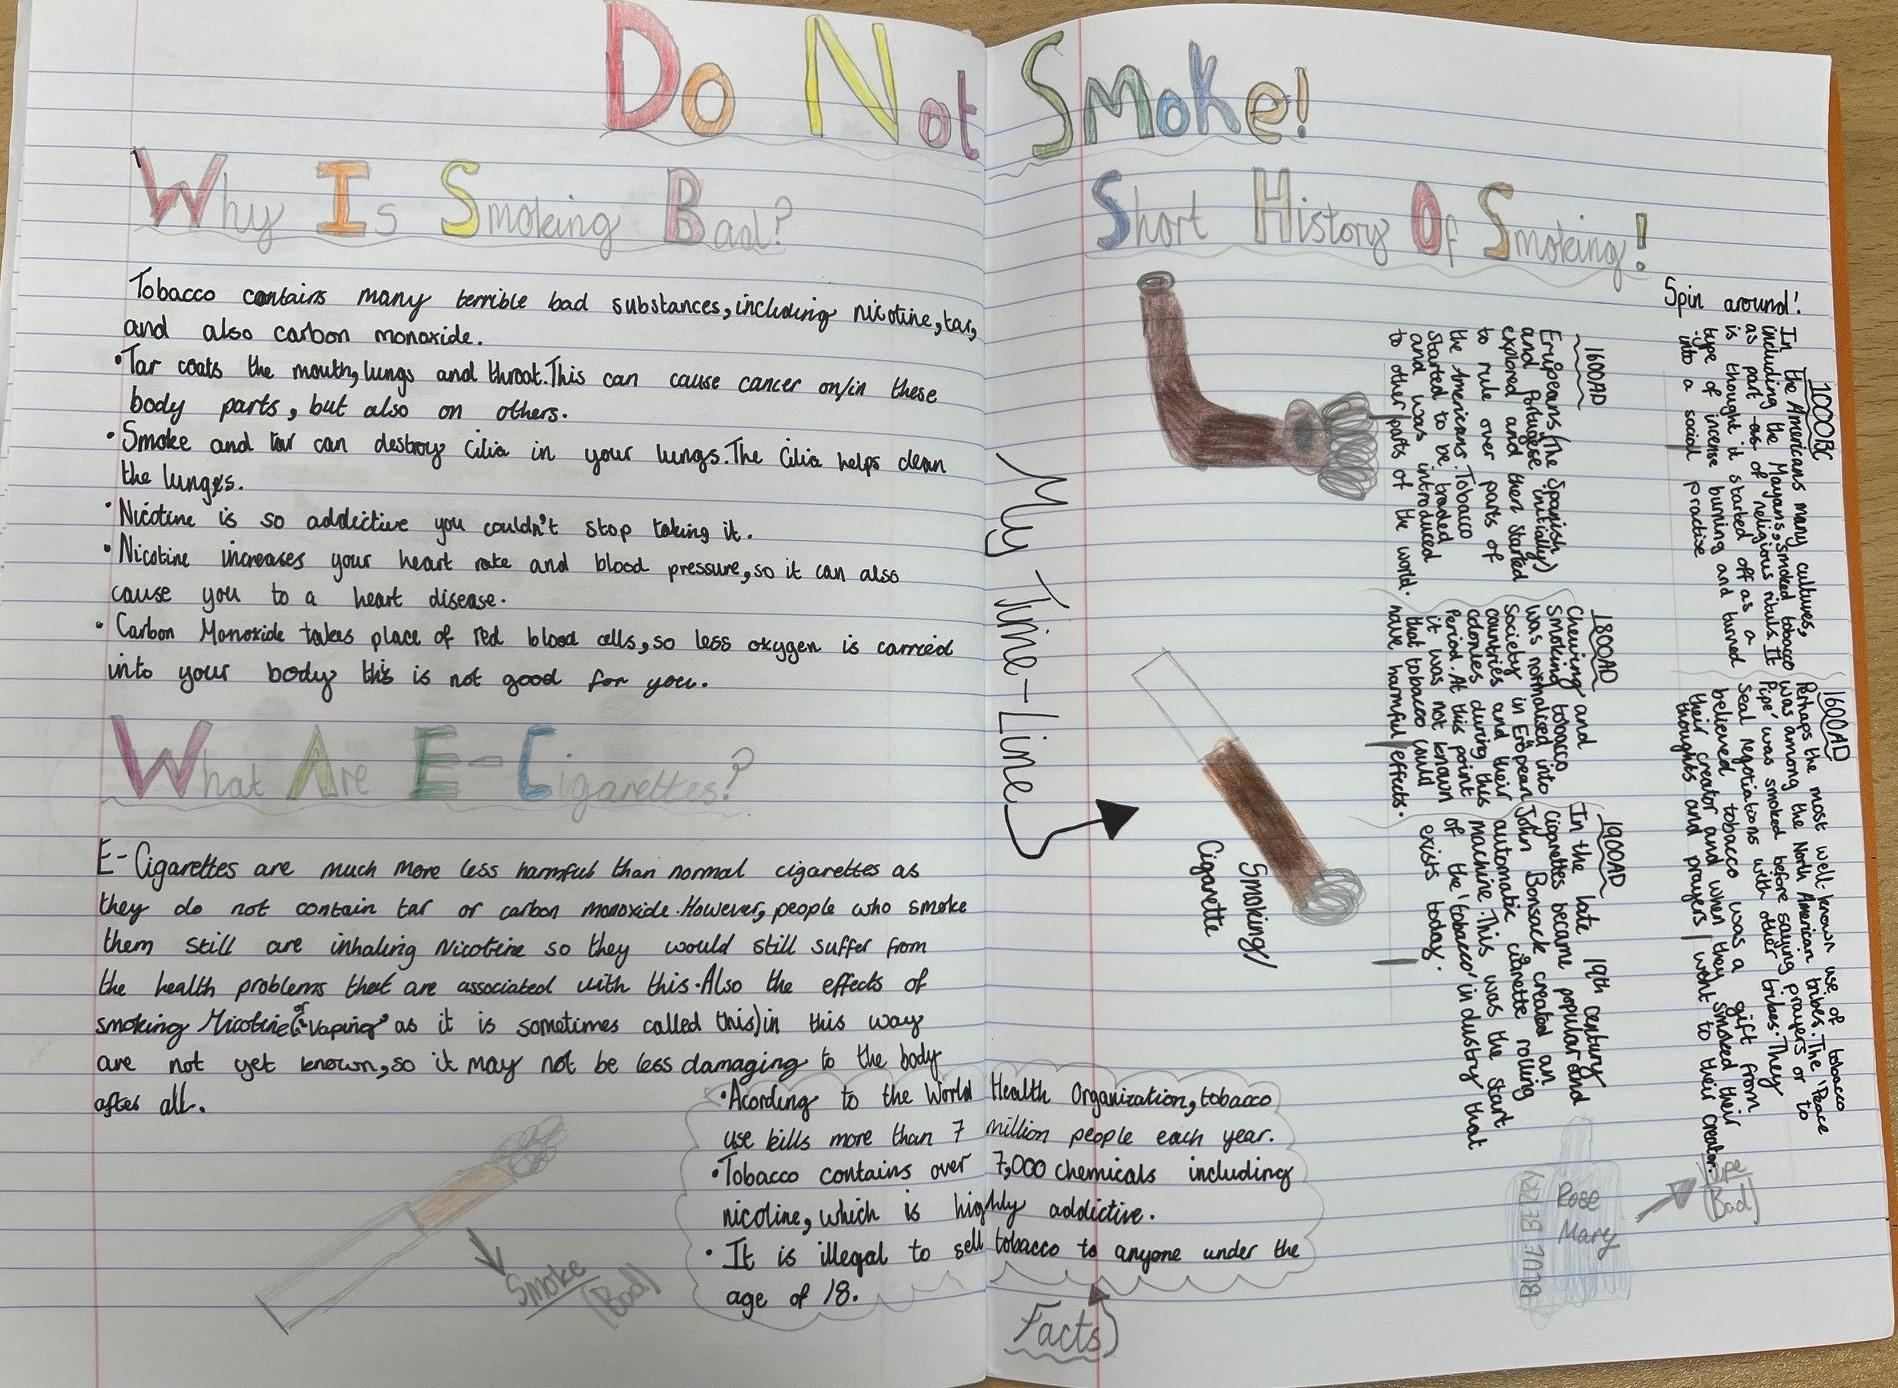 Do Not Smoke!
Why Is Smoking Bad?
Tobacco contains many terrible bad substances, including nicotine, tar,
and also carbon monoxide.
•Tar coats the mouth, lungs and throat. This can cause cancer on/in these
body parts, but also on others.
•Smoke and tar can destroy Cilia in your lungs. The Cilia helps clean
the lunges.
•Nicotine is so addictive you couldn't stop taking it.
•Nicotine increases your heart rate and blood pressure, so it can also
cause you to a heart disease.
•Carbon Monoxide takes place of red blood cells, so less oxygen is carried
into your body this is not good for you.
What Are E-Cigarettes?
E-Cigarettes are much more less harmful than normal cigarettes as
they do not contain tar or carbon monoxide. However, people who smoke
them still are inhaling Nicotine so they would still suffer from
the health problems that are associated with this. Also the effects of
smoking Nicotine (or 'Vaping' as it is sometimes called this) in this way
are not yet known, so it may not be less damaging to the body
after all.
Smoke
(Bad)
•Acording to the World Health Organization, tobacco
use kills more than 7 million people each year.
•Tobacco contains over 7,000 chemicals including
nicotine, which is highly addictive.
•It is illegal to sell tobacco to anyone under the
age of 18.
Facts
Short History Of Smoking!
My Time-Line
Smoking/
Cigarette
Spin around!
1000BC
In the Americans many cultures,
including the Mayans, smoked tobacco
as part as of religious rituals. It
is thought it started off as a
type of incense burning and turned
into a social practise
1600AD
Perhaps the most well-known use of tobacco
was among the North American tribes. The 'Peace
Pipe' was smoked before saying prayers or to
Seal negotiations with other tribes. They
believed tobacco was a gift from
their creator and when they smoked their
thoughts and prayers went to their creator.
1600AD
Erupeans (The Spanish
and Portugese initially)
explored and then started
to rule over parts of
the Americans. Tobacco
started to be traded
and was introduced
to other parts of the world.
1800AD
Chewing and
Smoking tobacco
was normalised into
Society in Eropean
countries and their
colonies during this
Period. At this point
it was not known
that tobacco could
have harmful effects.
1900AD
In the late 19th century
Cigarettes became popular and
John Bonsack created an
automatic cigarette rolling
machine. This was the start
of the 'tobacco' industry that
exists today.
Rose
Mary
Vape
(Bad)